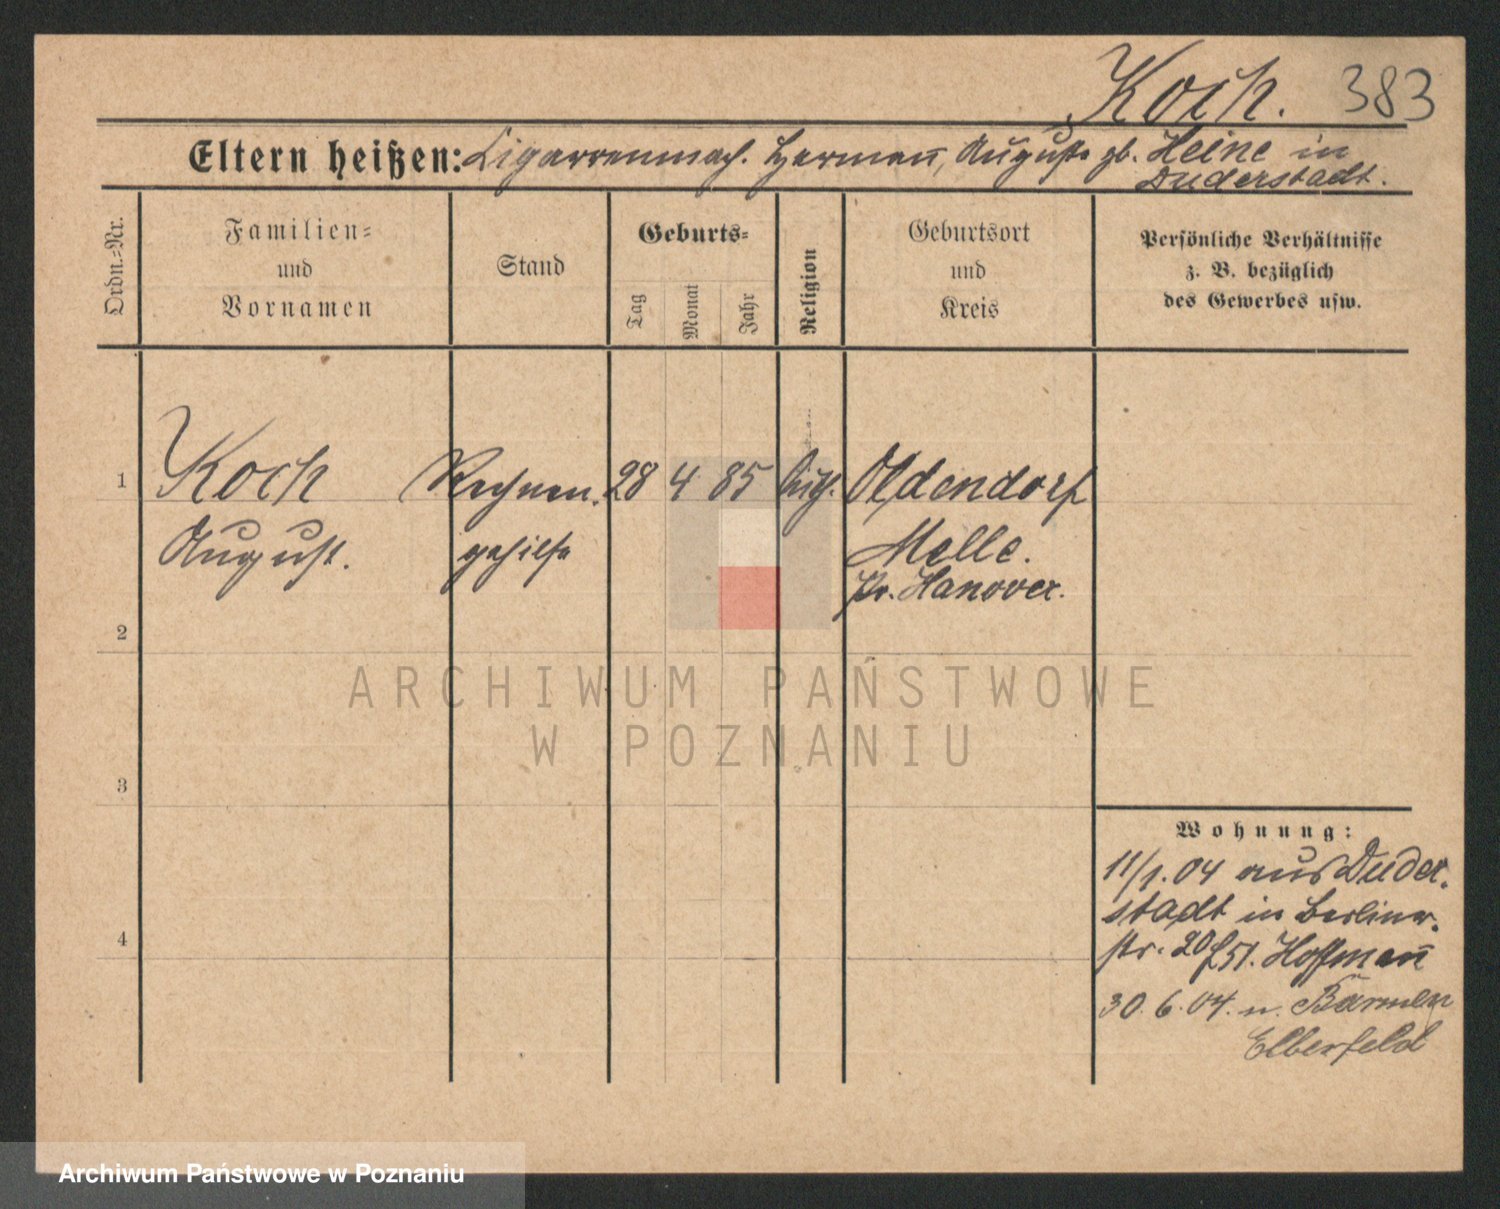 Koch. 383
Eltern heißen: Cigarrenmach. Herman̄, Auguste gb. Heine in
Duderstadt.
Ordn.-Nr.
Familien-
und
Vornamen
Stand
Geburts-
Tag
Monat
Jahr
Religion
Geburtsort
und
Kreis
Persönliche Verhältnisse
z. B. bezüglich
des Gewerbes usw.
1 Koch 28 4 85 Oldendorf
August. gehilfe Melle.
Pr. Hanover.
2
3
4
Wohnung:
11/1.04 aus Duder.
stadt in Berliner.
str. 20 Hoffman̄
30.6.04. n. Barmen
Elberfeld
ARCHIWUM PAŃSTWOWE
W POZNANIU
Archiwum Państwowe w Poznaniu